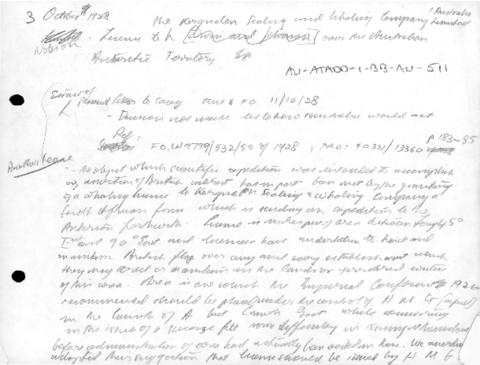 3 October 1928 The Kerguelen Sealing and Whaling Company Limited
Licence to h over the Australian
Antarctic Territory
AU-ATADD-1-BB-AU-511
to Casey FO 11/10/28
- Decision not made as to how Australia would act
Ref:
FO, W9779/532/50 of 1928, PRO: FO 371/13360 p 183-85
Another Leave
- object which scientific expedition was intended to accomplish
assertion of British interest has in part been met by the granting
of a whaling licence to Kerguelen Sealing & Whaling Company a
South African firm which is sending an expedition to the
Antarctic forthwith. Licence is in respect of area between longitude 50
East and 90 East and licencees have undertaken to hoist and
maintain British flag over any and every establishment which
they may erect or maintain in the lands or territorial waters
of this area. Area is one which the Imperial Conference 1926
recommended should be placed under the control of H M G
in the C'wealth of A but C'wealth Govt while concurring
in the issue of a licence felt some difficulty in issuing it themselves
before administration of area had actually been vested in them. We accordingly
adopted their suggestion that licence should be issued by H M G.